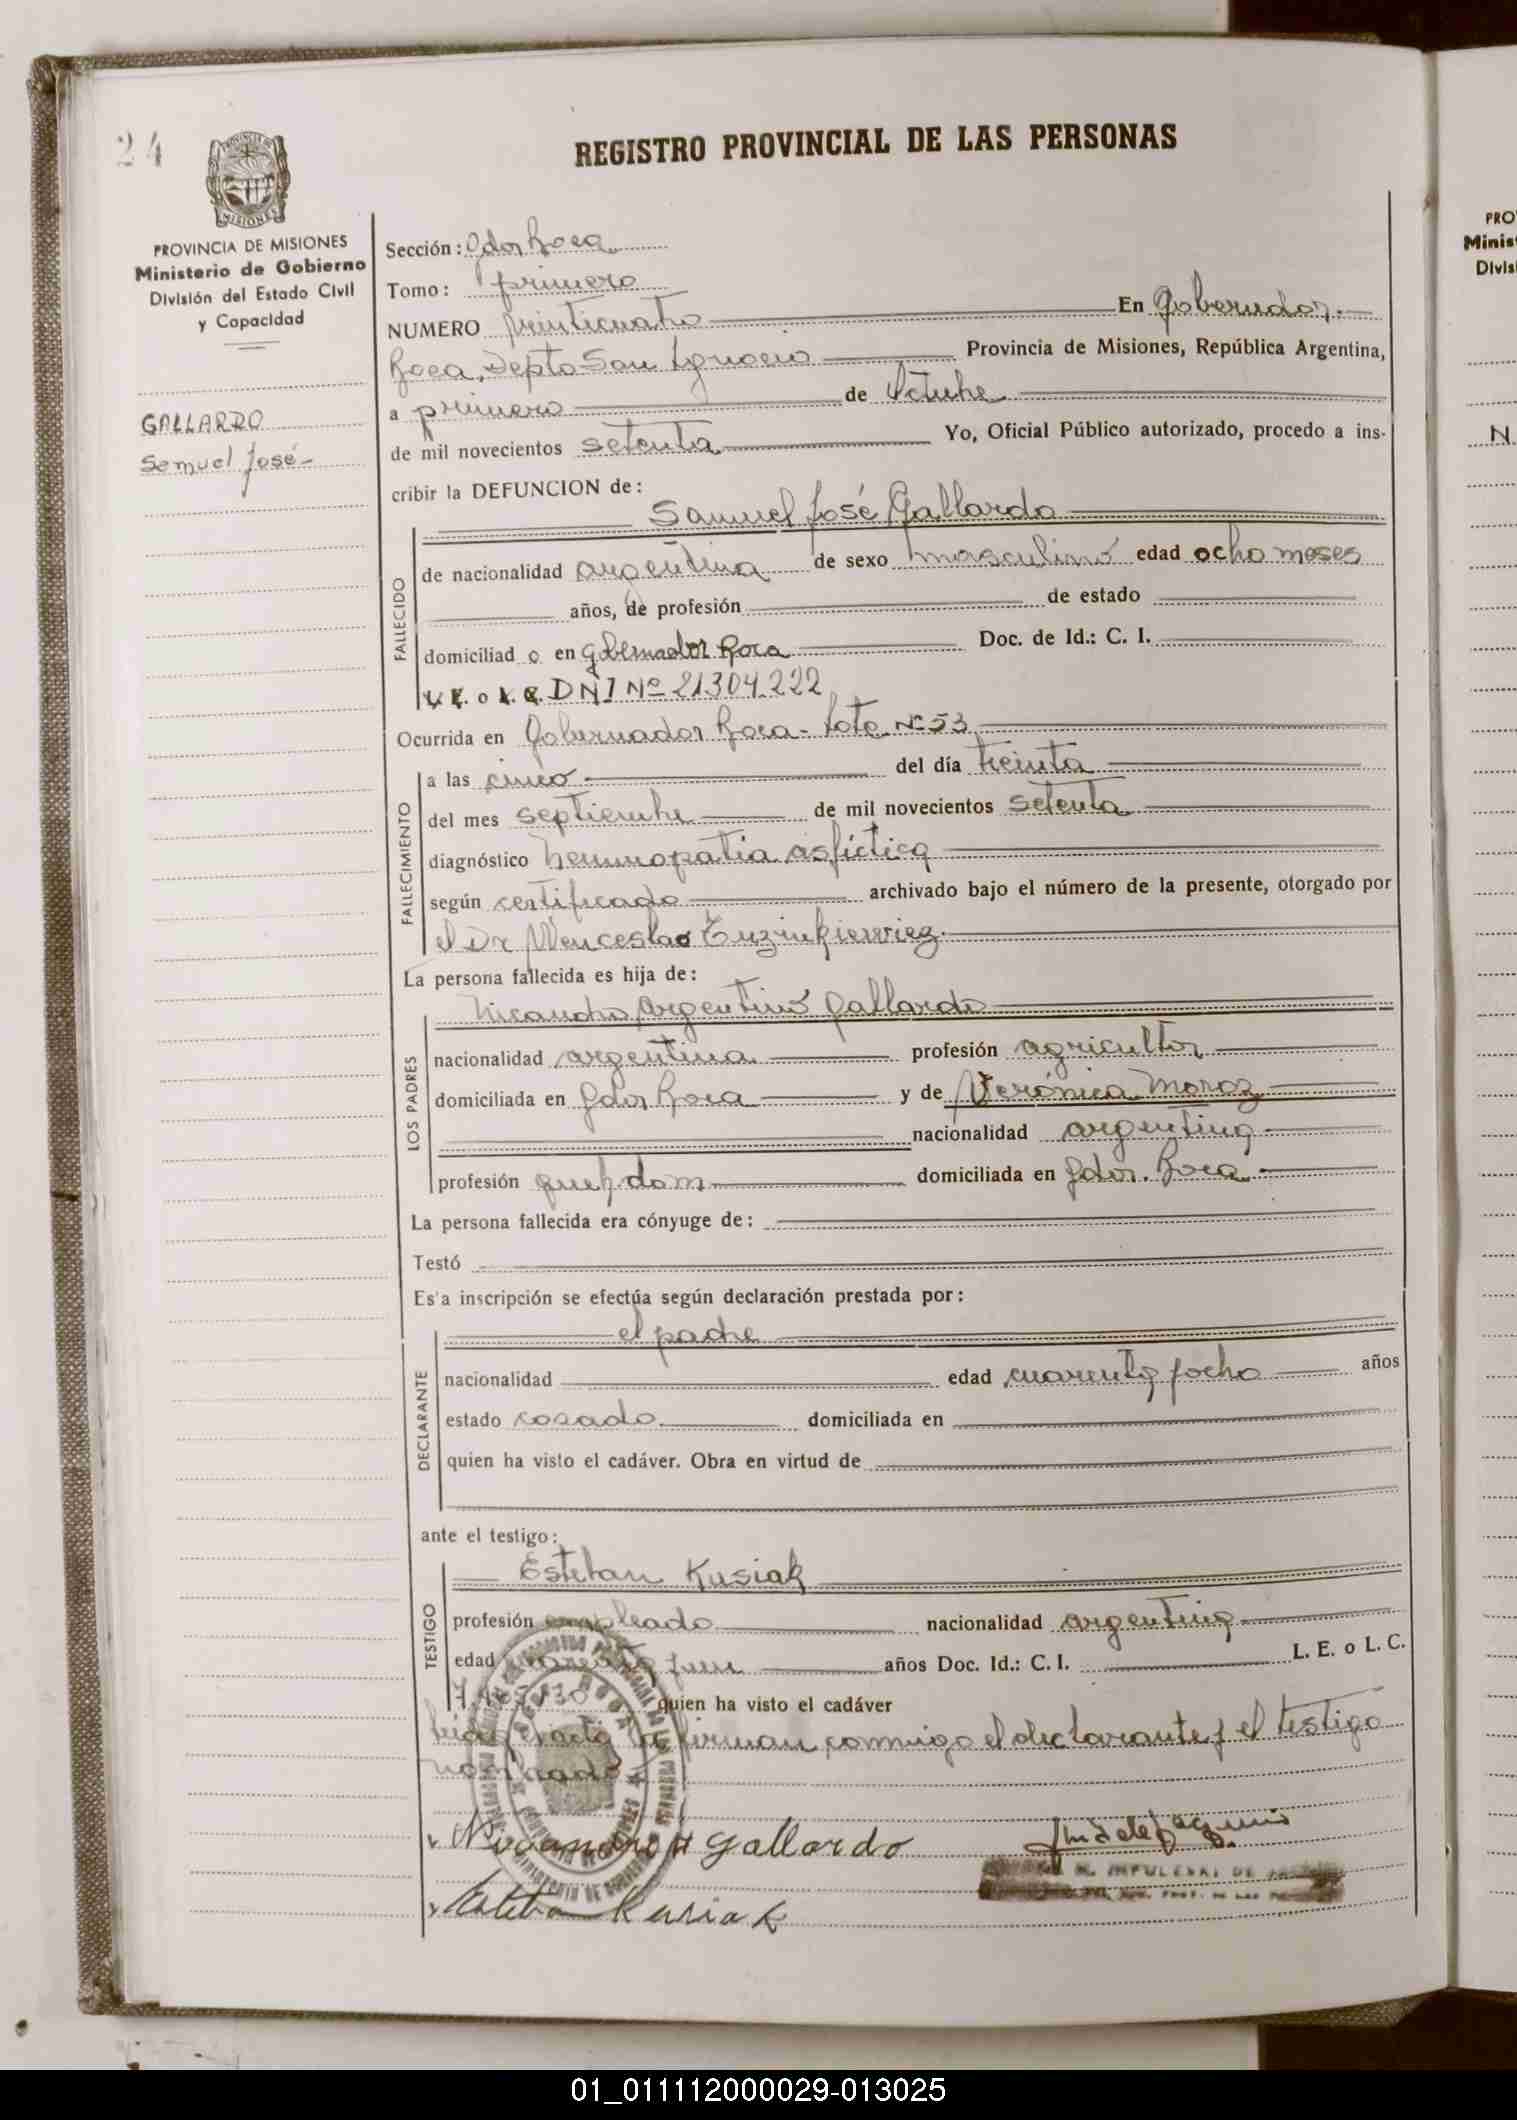 24
REGISTRO PROVINCIAL DE LAS PERSONAS
PROVINCIA DE MISIONES
Ministerio de Gobierno
División del Estado Civil
y Capacidad
GALLARDO
Samuel José-
Sección: Gdor Roca
Tomo: primero
NUMERO veinticuatro En Gobernador
Roca, Depto San Ignacio Provincia de Misiones, República Argentina,
a primero de Octubre
de mil novecientos setenta Yo, Oficial Público autorizado, procedo a ins-
cribir la DEFUNCION de:
Samuel José Gallardo
FALLECIDO
de nacionalidad argentina de sexo masculino edad ocho meses
años, de profesión de estado
domiciliad o en Gobernador Roca Doc. de Id.: C. I.
L. E. o L. C. DNI Nº 21304.222
Ocurrida en Gobernador Roca - Lote Nº 53
FALLECIMIENTO
a las cinco del día treinta
del mes septiembre de mil novecientos setenta
diagnóstico asfíctica
según certificado archivado bajo el número de la presente, otorgado por
el Dr Wenceslao
La persona fallecida es hija de:
Nicandro Argentino Gallardo
LOS PADRES
nacionalidad argentina profesión agricultor
domiciliada en Gdor Roca y de Verónica Moroz
nacionalidad argentina
profesión queh. dom domiciliada en Gdor. Roca
La persona fallecida era cónyuge de:
Testó
Es'a inscripción se efectúa según declaración prestada por:
el padre
DECLARANTE
nacionalidad edad cuarenta y ocho años
estado casado domiciliada en
quien ha visto el cadáver. Obra en virtud de
ante el testigo:
Esteban Kusiak
TESTIGO
profesión empleado nacionalidad argentina
edad años Doc. Id.: C. I. L. E. o L. C.
quien ha visto el cadáver
acta la firman conmigo el declarante y el testigo
nombrado
Nicandro A Gallardo
Esteban Kusiak
M. IMPULESKI DE
PRO
Minis
Divis
N.
01_011112000029-013025